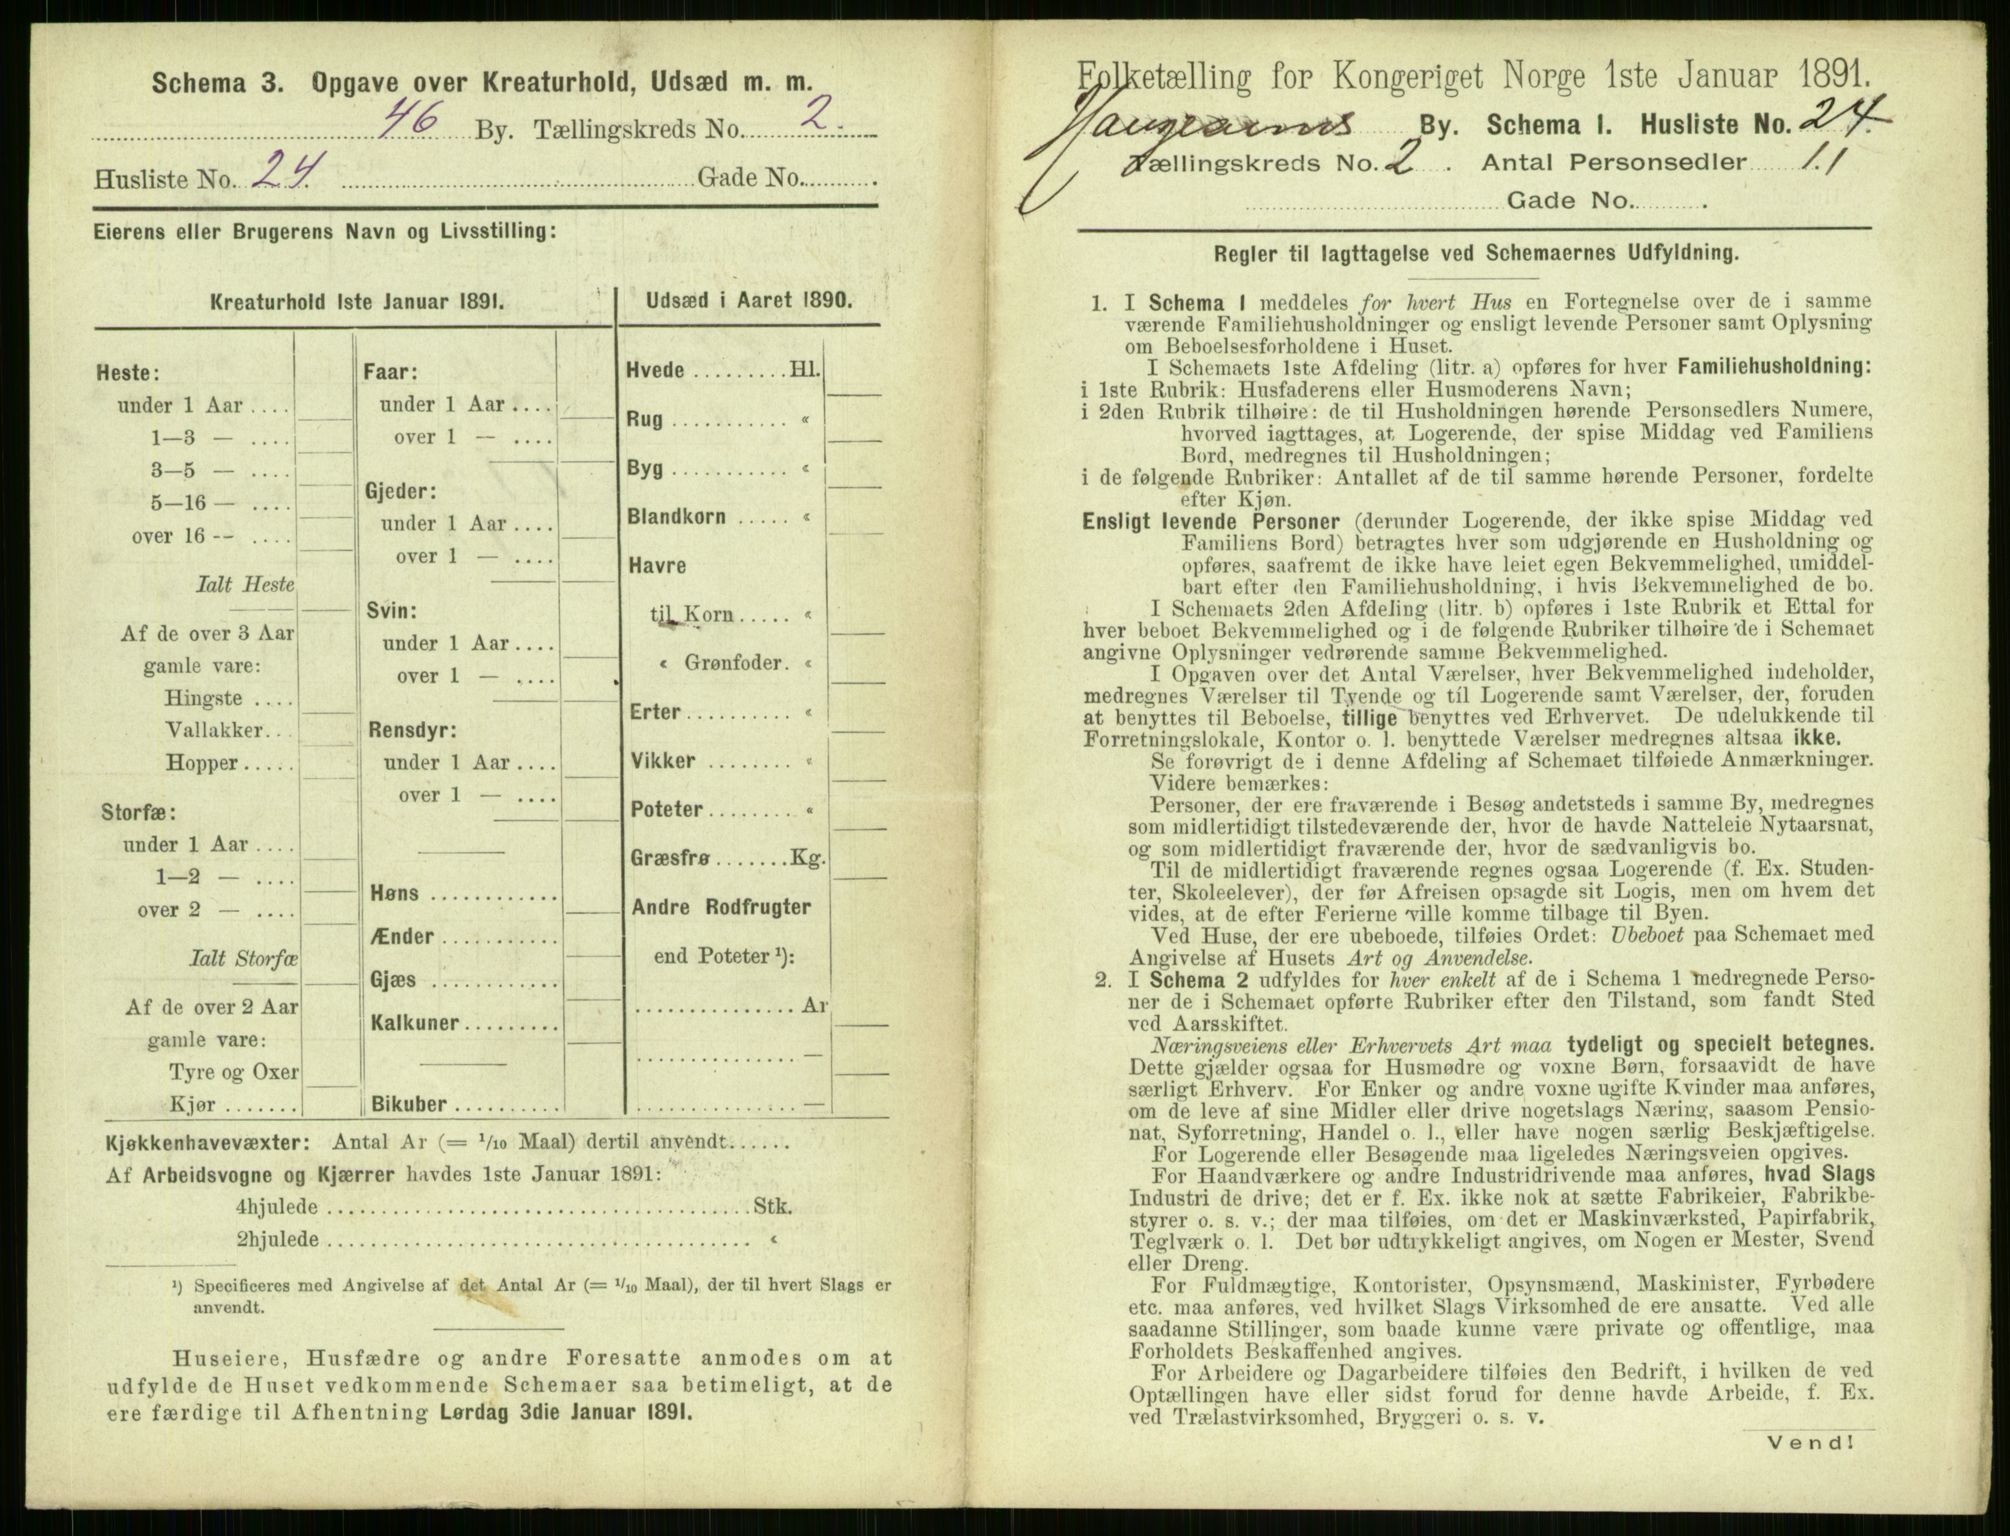 Schema 3. Opgave over Kreaturhold, Udsæd m. m.
46 By. Tællingskreds No. 2.
Husliste No. 24. Gade No.
Eierens eller Brugerens Navn og Livsstilling:
Kreaturhold 1ste Januar 1891.
Heste:
under 1 Aar
1—3 —
3—5 —
5—16 —
over 16 --
Ialt Heste
Af de over 3 Aar
gamle vare:
Hingste
Vallakker
Hopper
Storfæ:
under 1 Aar
1—2 —
over 2 —
Ialt Storfæ
Af de over 2 Aar
gamle vare:
Tyre og Oxer
Kjør
Faar:
under 1 Aar
over 1 —
Gjeder:
under 1 Aar
over 1 —
Svin:
under 1 Aar
over 1 —
Rensdyr:
under 1 Aar
over 1 —
Høns
Ænder
Gjæs
Kalkuner
Bikuber
Udsæd i Aaret 1890.
Hvede Hl.
Rug «
Byg «
Blandkorn «
Havre
til Korn «
« Grønfoder. «
Erter «
Vikker «
Poteter «
Græsfrø Kg.
Andre Rodfrugter
end Poteter ¹):
Ar
—
—
Kjøkkenhavevæxter: Antal Ar (= 1/10 Maal) dertil anvendt
Af Arbeidsvogne og Kjærrer havdes 1ste Januar 1891:
4hjulede Stk.
2hjulede «
¹) Specificeres med Angivelse af det Antal Ar (= 1/10 Maal), der til hvert Slags er
anvendt.
Huseiere, Husfædre og andre Foresatte anmodes om at
udfylde de Huset vedkommende Schemaer saa betimeligt, at de
ere færdige til Afhentning Lørdag 3die Januar 1891.
Folketælling for Kongeriget Norge 1ste Januar 1891.
By. Schema 1. Husliste No. 24.
Tællingskreds No. 2. Antal Personsedler 11
Gade No.
Regler til Iagttagelse ved Schemaernes Udfyldning.
1. I Schema 1 meddeles for hvert Hus en Fortegnelse over de i samme
værende Familiehusholdninger og ensligt levende Personer samt Oplysning
om Beboelsesforholdene i Huset.
I Schemaets 1ste Afdeling (litr. a) opføres for hver Familiehusholdning:
i 1ste Rubrik: Husfaderens eller Husmoderens Navn;
i 2den Rubrik tilhøire: de til Husholdningen hørende Personsedlers Numere,
hvorved iagttages, at Logerende, der spise Middag ved Familiens
Bord, medregnes til Husholdningen;
i de følgende Rubriker: Antallet af de til samme hørende Personer, fordelte
efter Kjøn.
Ensligt levende Personer (derunder Logerende, der ikke spise Middag ved
Familiens Bord) betragtes hver som udgjørende en Husholdning og
opføres, saafremt de ikke have leiet egen Bekvemmelighed, umiddel-
bart efter den Familiehusholdning, i hvis Bekvemmelighed de bo.
I Schemaets 2den Afdeling (litr. b) opføres i 1ste Rubrik et Ettal for
hver beboet Bekvemmelighed og i de følgende Rubriker tilhøire de i Schemaet
angivne Oplysninger vedrørende samme Bekvemmelighed.
I Opgaven over det Antal Værelser, hver Bekvemmelighed indeholder,
medregnes Værelser til Tyende og til Logerende samt Værelser, der, foruden
at benyttes til Beboelse, tillige benyttes ved Erhvervet. De udelukkende til
Forretningslokale, Kontor o. l. benyttede Værelser medregnes altsaa ikke.
Se forøvrigt de i denne Afdeling af Schemaet tilføiede Anmærkninger.
Videre bemærkes:
Personer, der ere fraværende i Besøg andetsteds i samme By, medregnes
som midlertidigt tilstedeværende der, hvor de havde Natteleie Nytaarsnat,
og som midlertidigt fraværende der, hvor de sædvanligvis bo.
Til de midlertidigt fraværende regnes ogsaa Logerende (f. Ex. Studen-
ter, Skoleelever), der før Afreisen opsagde sit Logis, men om hvem det
vides, at de efter Ferierne ville komme tilbage til Byen.
Ved Huse, der ere ubeboede, tilføies Ordet: Ubeboet paa Schemaet med
Angivelse af Husets Art og Anvendelse.
2. I Schema 2 udfyldes for hver enkelt af de i Schema 1 medregnede Perso-
ner de i Schemaet opførte Rubriker efter den Tilstand, som fandt Sted
ved Aarsskiftet.
Næringsveiens eller Erhvervets Art maa tydeligt og specielt betegnes.
Dette gjælder ogsaa for Husmødre og voxne Børn, forsaavidt de have
særligt Erhverv. For Enker og andre voxne ugifte Kvinder maa anføres,
om de leve af sine Midler eller drive nogetslags Næring, saasom Pensio-
nat, Syforretning, Handel o. l., eller have nogen særlig Beskjæftigelse.
For Logerende eller Besøgende maa ligeledes Næringsveien opgives.
For Haandværkere og andre Industridrivende maa anføres, hvad Slags
Industri de drive; det er f. Ex. ikke nok at sætte Fabrikeier, Fabrikbe-
styrer o. s. v.; der maa tilføies, om det er Maskinværksted, Papirfabrik,
Teglværk o. l. Det bør udtrykkeligt angives, om Nogen er Mester, Svend
eller Dreng.
For Fuldmægtige, Kontorister, Opsynsmænd, Maskinister, Fyrbødere
etc. maa anføres, ved hvilket Slags Virksomhed de ere ansatte. Ved alle
saadanne Stillinger, som baade kunne være private og offentlige, maa
Forholdets Beskaffenhed angives.
For Arbeidere og Dagarbeidere tilføies den Bedrift, i hvilken de ved
Optællingen have eller sidst forud for denne havde Arbeide, f. Ex.
ved Trælastvirksomhed, Bryggeri o. s. v.
Vend!